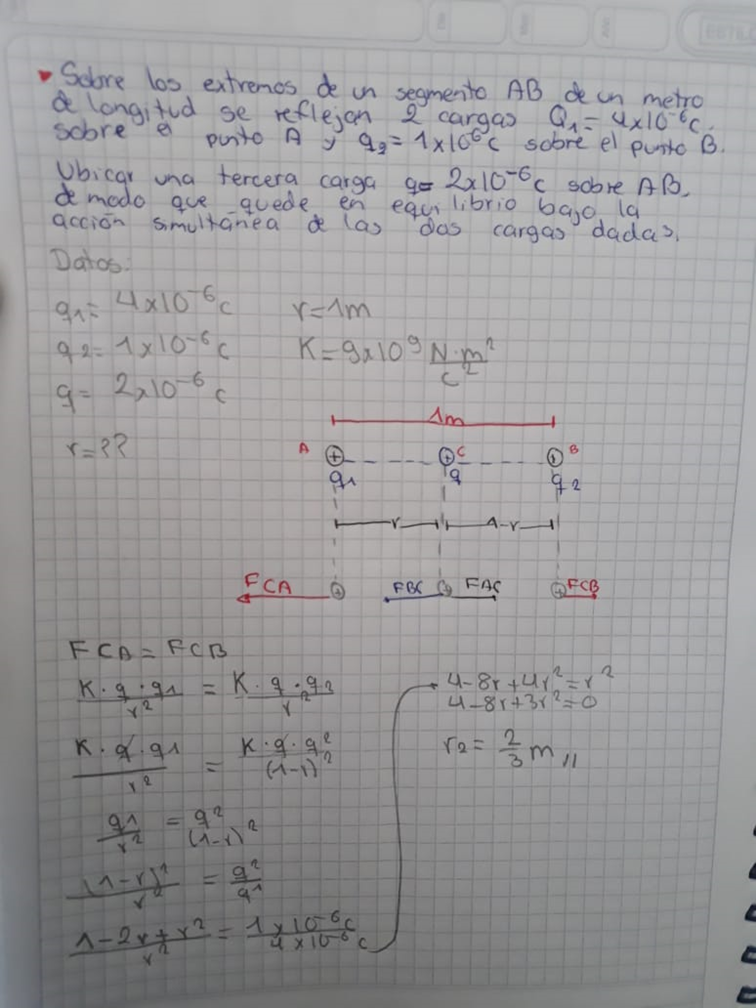 Sobre los extremos de un segmento AB de un metro
de longitud se reflejan 2 cargas Q₁= 4x10⁻⁶c.
sobre el punto A y q₂= 1x10⁶c sobre el punto B.
Ubicar una tercera carga q= 2x10⁻⁶c sobre AB,
de modo que quede en equilibrio bajo la
acción simultánea de las dos cargas dadas.
Datos:
q₁= 4x10⁻⁶c r=1m
q₂= 1x10⁻⁶c K=9x10⁹ N·m²/c²
q= 2x10⁻⁶c
1m
r=??
A + C + B +
q1 q q2
r 1-r
FCA + FBC + FAC + FCB
FCA = FCB
K·q·q1/r² = K·q·q2/r²
K·q·q1/r² = K·q·q²/(1-r)²
q1/r² = q²/(1-r)²
(1-r)²/r² = q²/q1
1-2r+r²/r² = 1x10⁻⁶c/4x10⁻⁶c
4-8r+4r²=r²
4-8r+3r²=0
r₂= 2/3 m,,